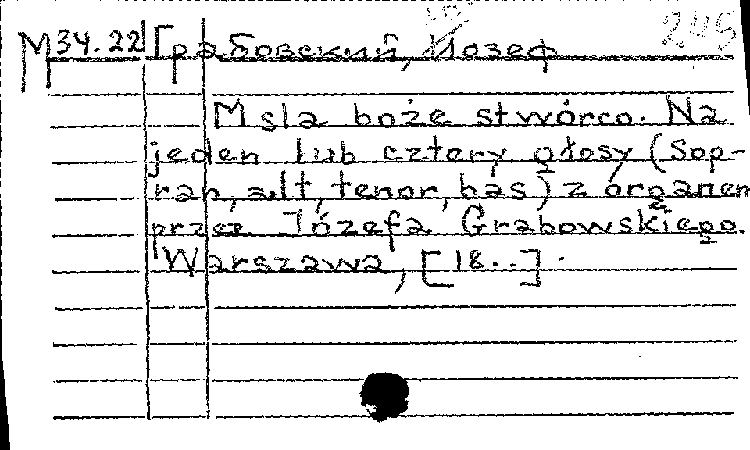 М 34.22 Грабовский, Иозеф 245
Msla boże stwórco. Na
jeden lub cztery głosy (Sop-
ran, alt, tenor, bas) z organem
przez Józefa Grabowskiego.
Warszawa, [18..].